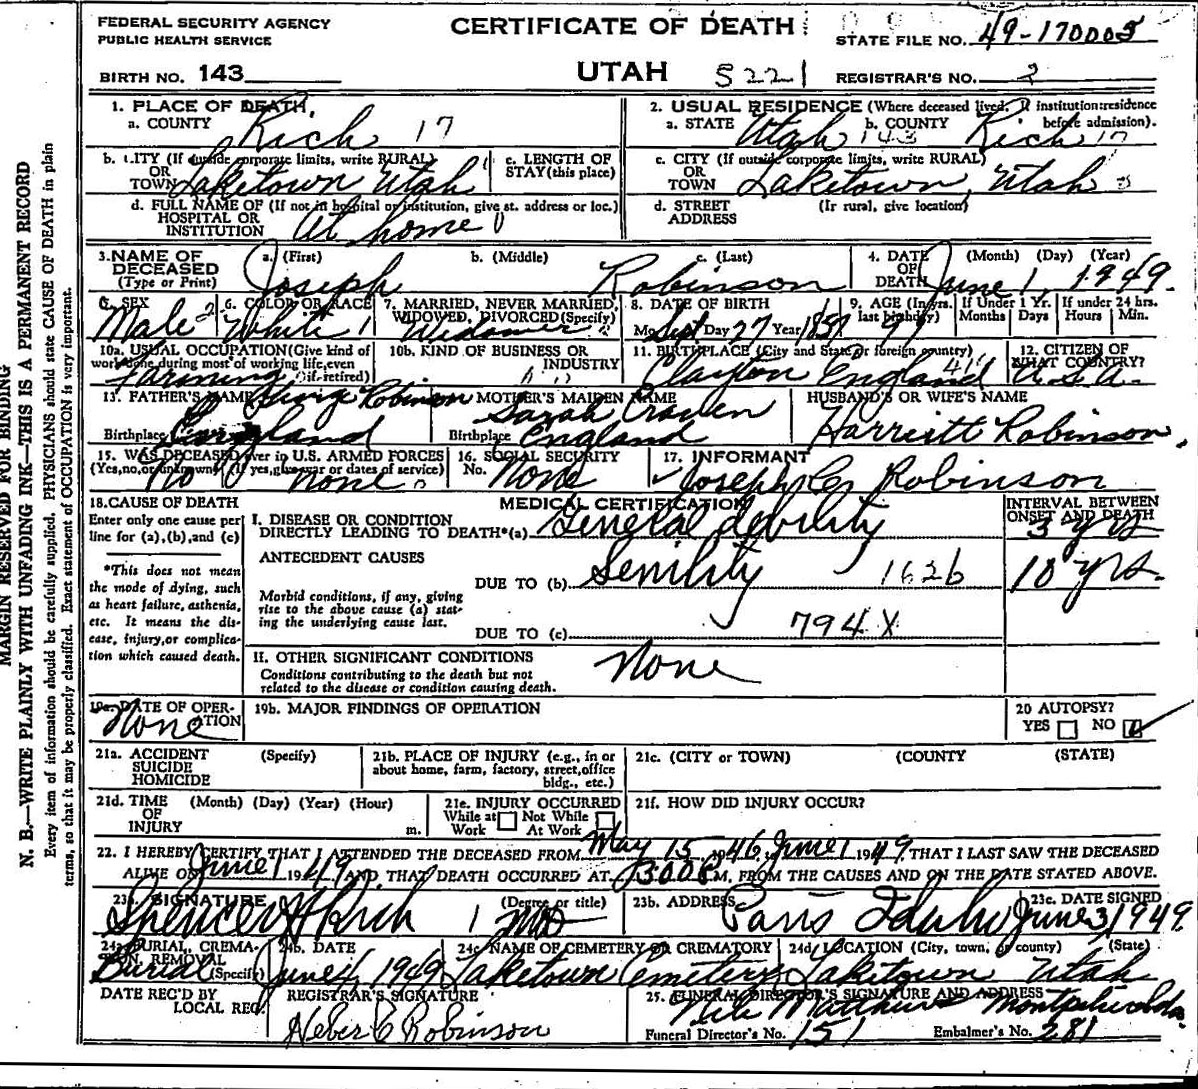 FEDERAL SECURITY AGENCY
PUBLIC HEALTH SERVICE
CERTIFICATE OF DEATH
STATE FILE NO. 49-170005
BIRTH NO. 143
UTAH 5221
REGISTRAR'S NO. 2
MARGIN RESERVED FOR BINDING
N. B.—WRITE PLAINLY WITH UNFADING INK—THIS IS A PERMANENT RECORD
Every item of information should be carefully supplied. PHYSICIANS should state CAUSE OF DEATH in plain
terms, so that it may be properly classified. Exact statement of OCCUPATION is very important.
1. PLACE OF DEATH
a. COUNTY Rich 17
2. USUAL RESIDENCE (Where deceased lived. If institution:residence
before admission).
a. STATE Utah 143 b. COUNTY Rich 17
b. CITY (If outside corporate limits, write RURAL)
OR
TOWN Laketown Utah
c. LENGTH OF
STAY (this place)
c. CITY (If outside corporate limits, write RURAL)
OR
TOWN Laketown, Utah
d. FULL NAME OF (If not in hospital or institution, give st. address or loc.)
HOSPITAL OR
INSTITUTION At home
d. STREET (If rural, give location)
ADDRESS
3. NAME OF
DECEASED
(Type or Print)
a. (First) b. (Middle) c. (Last)
Joseph Robinson
4. DATE (Month) (Day) (Year)
OF
DEATH June 1, 1949.
5. SEX
Male 2
6. COLOR OR RACE
White 1
7. MARRIED, NEVER MARRIED,
WIDOWED, DIVORCED (Specify)
Widower
8. DATE OF BIRTH
Mo. Sept Day 27 Year 1851
9. AGE (In yrs.
last birthday) 97
If Under 1 Yr.
Months Days
If under 24 hrs.
Hours Min.
10a. USUAL OCCUPATION (Give kind of
work done during most of working life, even
if retired)
Farming
10b. KIND OF BUSINESS OR
INDUSTRY
11. BIRTHPLACE (City and State or foreign country)
Clayton England
12. CITIZEN OF
WHAT COUNTRY?
U.S.A.
13. FATHER'S NAME George Robinson
Birthplace England
MOTHER'S MAIDEN NAME
Sarah Craven
Birthplace England
HUSBAND'S OR WIFE'S NAME
Harriett Robinson,
15. WAS DECEASED ever in U.S. ARMED FORCES
(Yes, no, or unknown) (If yes, give war or dates of service)
No none
16. SOCIAL SECURITY
No. None
17. INFORMANT
Joseph C. Robinson
18. CAUSE OF DEATH
Enter only one cause per
line for (a), (b), and (c)
*This does not mean
the mode of dying, such
as heart failure, asthenia,
etc. It means the dis-
ease, injury, or complica-
tion which caused death.
MEDICAL CERTIFICATION
I. DISEASE OR CONDITION
DIRECTLY LEADING TO DEATH*(a) General debility
INTERVAL BETWEEN
ONSET AND DEATH
3 yrs
ANTECEDENT CAUSES
DUE TO (b) Senility 162b 10 yrs.
Morbid conditions, if any, giving
rise to the above cause (a) stat-
ing the underlying cause last.
DUE TO (c) 794 X
II. OTHER SIGNIFICANT CONDITIONS
Conditions contributing to the death but not
related to the disease or condition causing death.
None
19a. DATE OF OPER-
ATION
None
19b. MAJOR FINDINGS OF OPERATION
20 AUTOPSY?
YES NO
21a. ACCIDENT (Specify)
SUICIDE
HOMICIDE
21b. PLACE OF INJURY (e.g., in or
about home, farm, factory, street, office
bldg., etc.)
21c. (CITY or TOWN) (COUNTY) (STATE)
21d. TIME (Month) (Day) (Year) (Hour)
OF
INJURY m.
21e. INJURY OCCURRED
While at Not While
Work At Work
21f. HOW DID INJURY OCCUR?
22. I HEREBY CERTIFY THAT I ATTENDED THE DECEASED FROM May 15 1946, June 1 1949. THAT I LAST SAW THE DECEASED
ALIVE ON June 1 1949, AND THAT DEATH OCCURRED AT 300P M. FROM THE CAUSES AND ON THE DATE STATED ABOVE.
23a. SIGNATURE (Degree or title)
Spencer H Rich 1 MD
23b. ADDRESS
Paris Idaho
23c. DATE SIGNED
June 3, 1949.
24a. BURIAL, CREMA-
TION, REMOVAL
(Specify)
Burial
24b. DATE
June 4, 1949
24c. NAME OF CEMETERY OR CREMATORY
Laketown Cemetery
24d. LOCATION (City, town, or county) (State)
Laketown Utah
DATE REC'D BY
LOCAL REG.
REGISTRAR'S SIGNATURE
Heber C Robinson
25. FUNERAL DIRECTOR'S SIGNATURE AND ADDRESS
Matthews Montpelier Ida.
Funeral Director's No. 151 Embalmer's No. 281